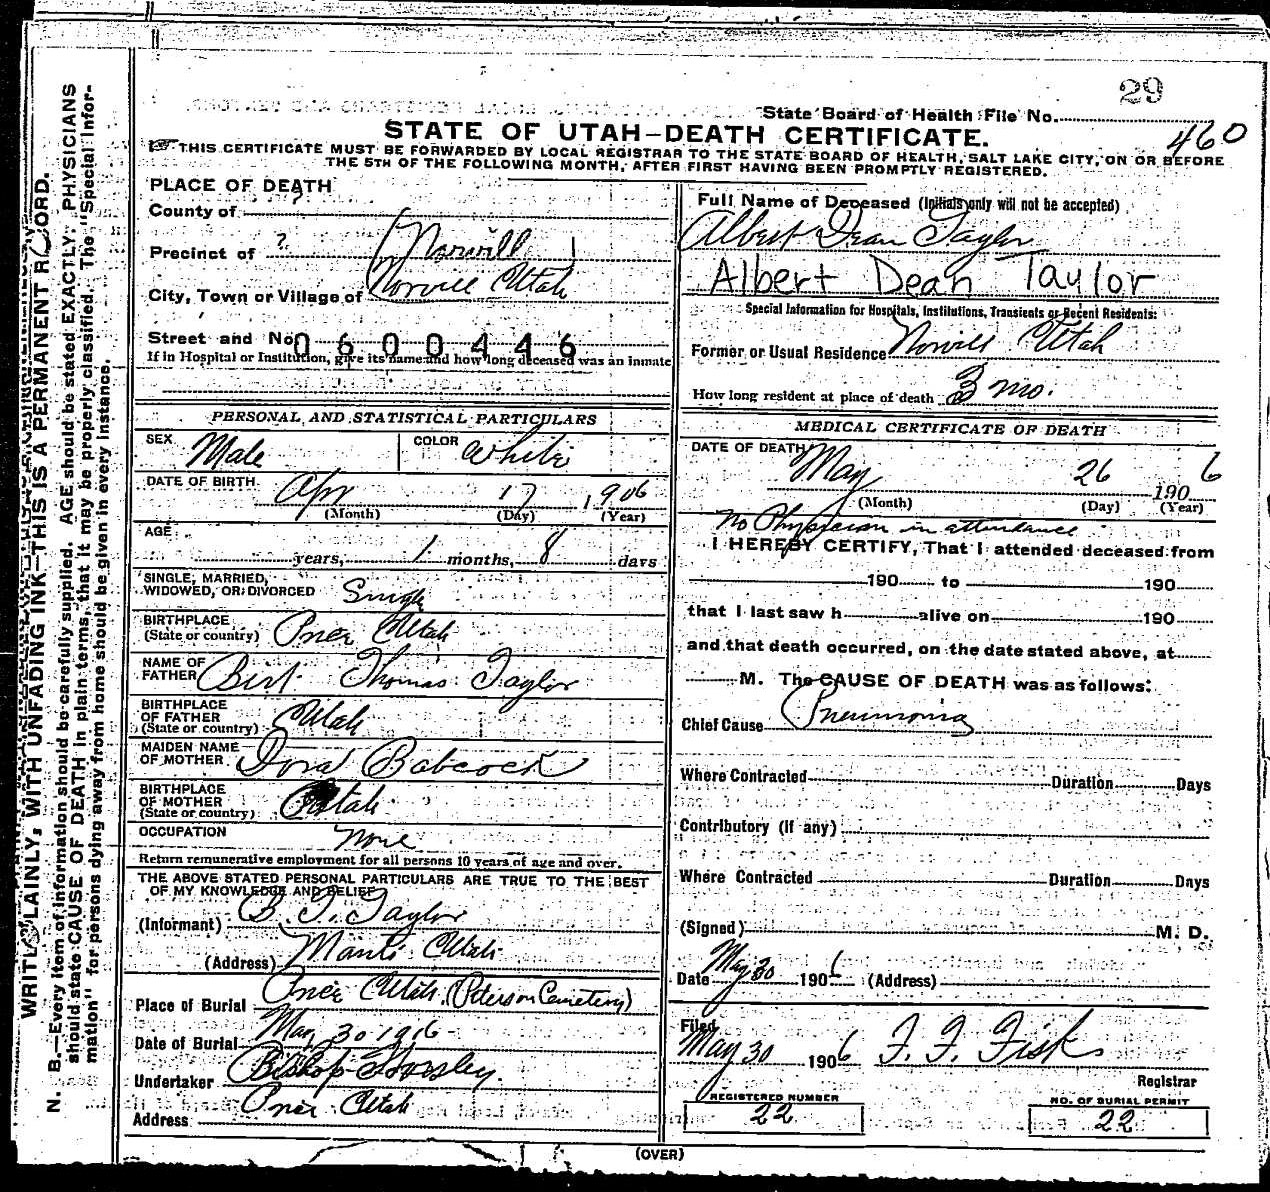 29
State Board of Health File No.
STATE OF UTAH—DEATH CERTIFICATE.
460
THIS CERTIFICATE MUST BE FORWARDED BY LOCAL REGISTRAR TO THE STATE BOARD OF HEALTH, SALT LAKE CITY, ON OR BEFORE
THE 5TH OF THE FOLLOWING MONTH, AFTER FIRST HAVING BEEN PROMPTLY REGISTERED.
WRITE PLAINLY, WITH UNFADING INK—THIS IS A PERMANENT RECORD.
N. B.—Every item of information should be carefully supplied. AGE should be stated EXACTLY. PHYSICIANS
should state CAUSE OF DEATH in plain terms, that it may be properly classified. The "Special Infor-
mation" for persons dying away from home should be given in every instance.
PLACE OF DEATH
County of
Precinct of ?
City, Town or Village of Norvill Utah
Street and No.
0600446
If in Hospital or Institution, give its name and how long deceased was an inmate
PERSONAL AND STATISTICAL PARTICULARS
SEX Male COLOR White
DATE OF BIRTH Apr 17 1906
(Month) (Day) (Year)
AGE
years, 1 months, 8 days
SINGLE, MARRIED,
WIDOWED, OR DIVORCED Single
BIRTHPLACE
(State or country) Utah
NAME OF
FATHER Birt Thomas Taylor
BIRTHPLACE
OF FATHER
(State or country) Utah
MAIDEN NAME
OF MOTHER Dora Babcock
BIRTHPLACE
OF MOTHER
(State or country) Utah
OCCUPATION None
Return remunerative employment for all persons 10 years of age and over.
THE ABOVE STATED PERSONAL PARTICULARS ARE TRUE TO THE BEST
OF MY KNOWLEDGE AND BELIEF
(Informant) B. T. Taylor
(Address) Manti Utah
Place of Burial Utah (Peterson Cemetery)
Date of Burial May 30 1906
Undertaker Bishop
Address Utah
Full Name of Deceased (Initials only will not be accepted)
Albert Dean Taylor
Albert Dean Taylor
Special Information for Hospitals, Institutions, Transients or Recent Residents:
Former or Usual Residence Norvill Utah
How long resident at place of death 3 mo.
MEDICAL CERTIFICATE OF DEATH
DATE OF DEATH May 26 1906
(Month) (Day) (Year)
No Physician in attendance
I HEREBY CERTIFY, That I attended deceased from
190 to 190
that I last saw h alive on 190
and that death occurred, on the date stated above, at
M. The CAUSE OF DEATH was as follows:
Chief Cause Pneumonia
Where Contracted Duration Days
Contributory (if any)
Where Contracted Duration Days
(Signed) M. D.
Date May 30 1906 (Address)
Filed
May 30 1906 F. F. Fisk
Registrar
REGISTERED NUMBER
22
NO. OF BURIAL PERMIT
22
(OVER)